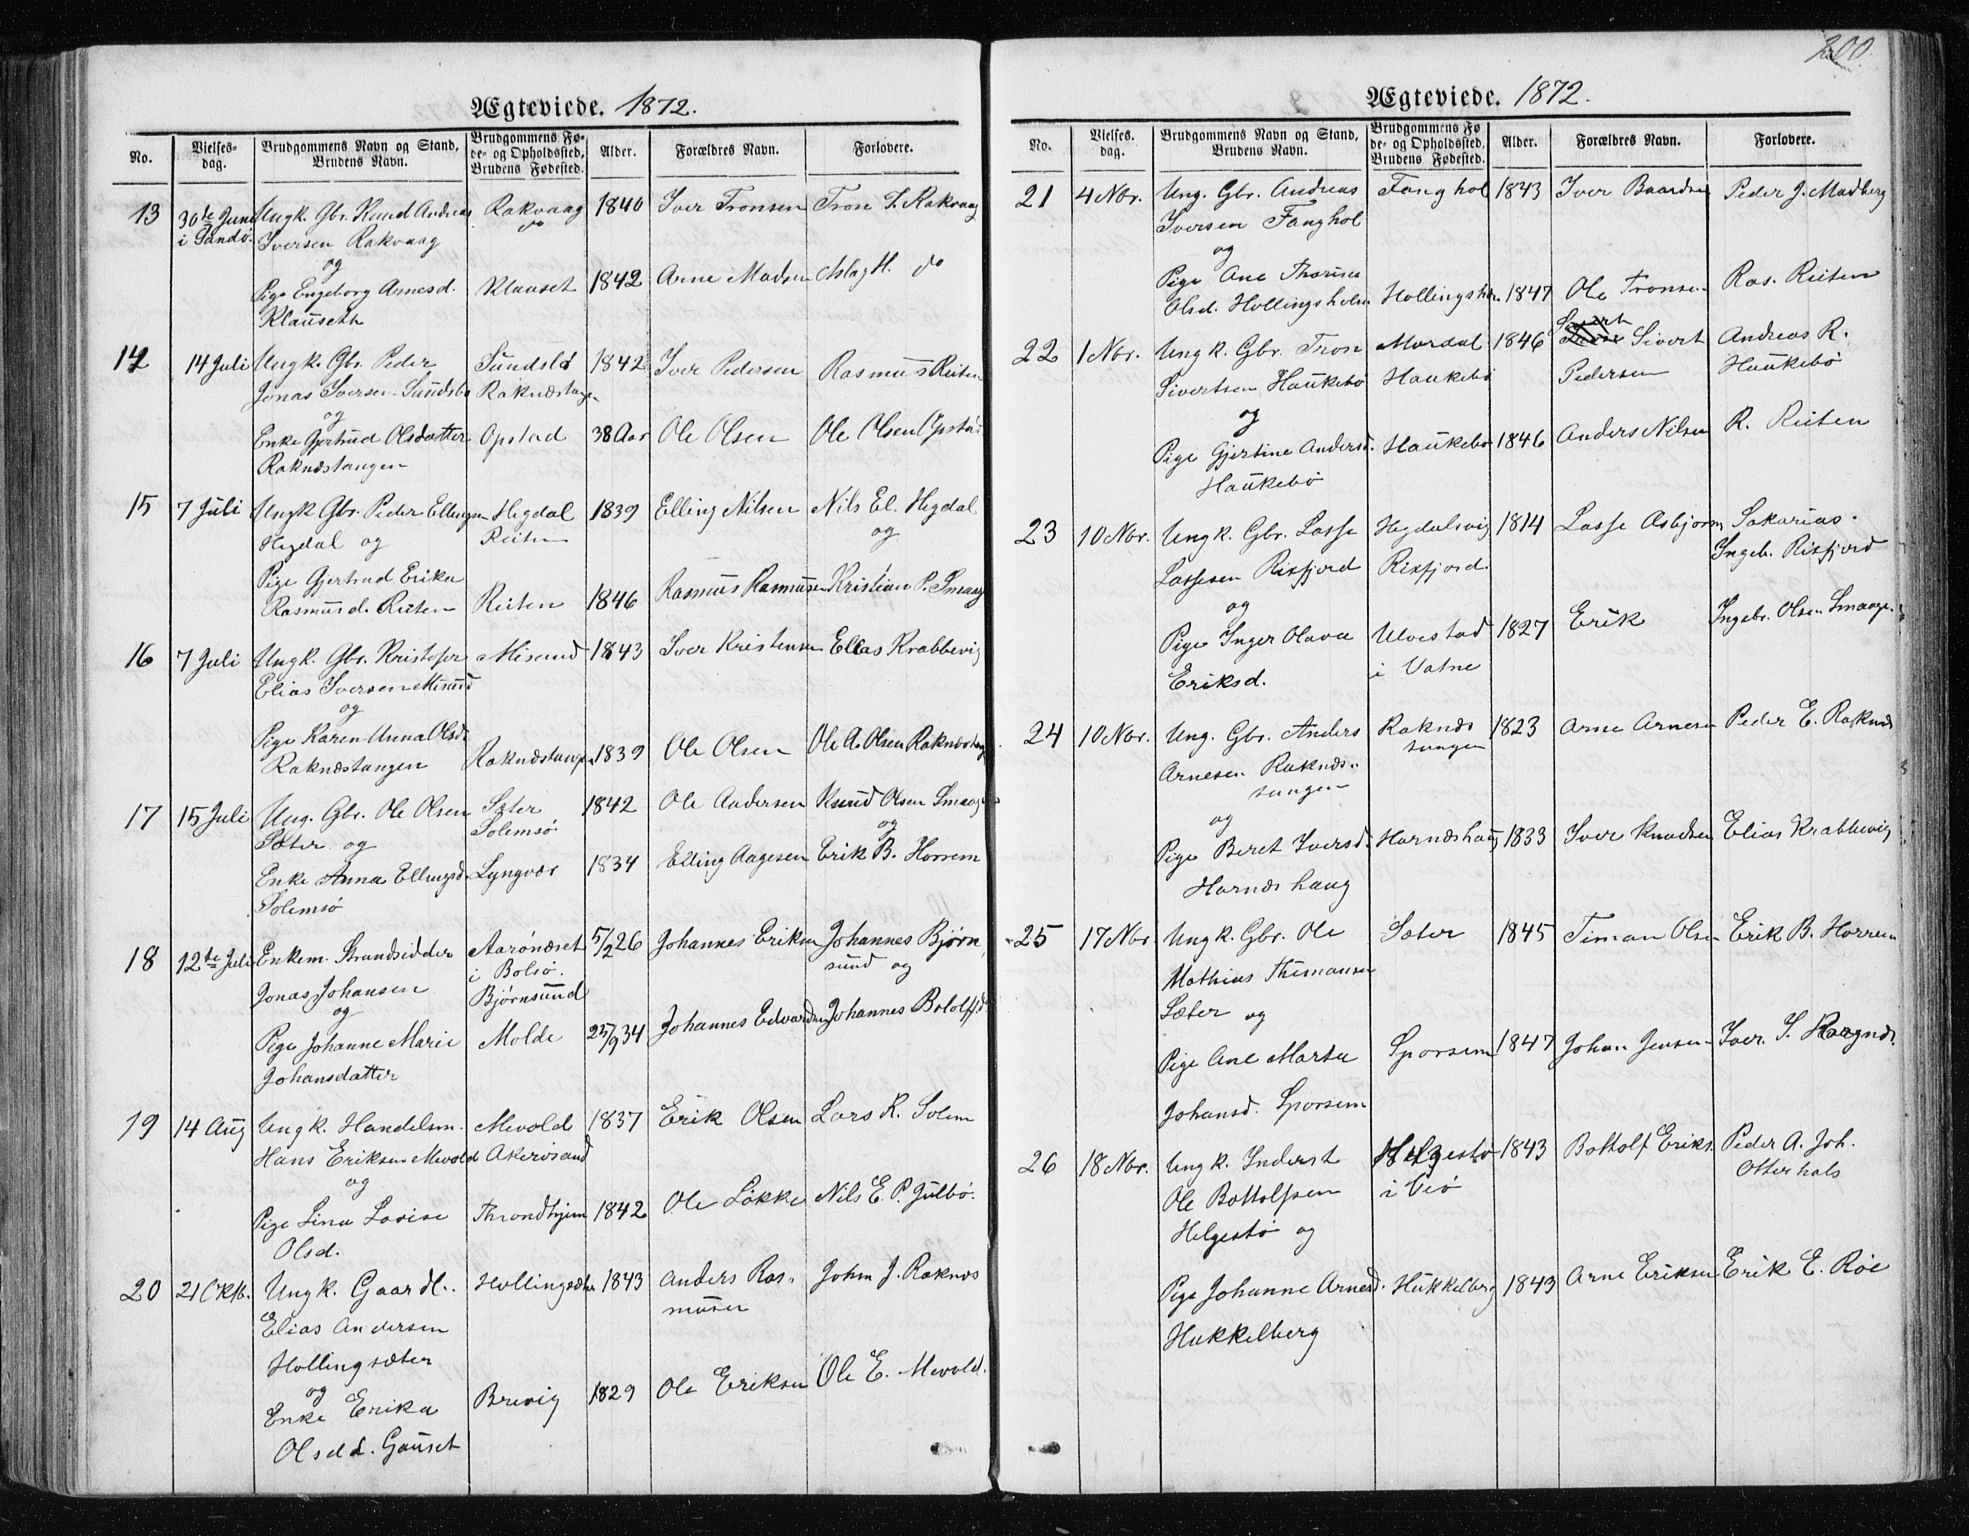 Ægteviede. 1872.
No.
Vielses-
dag.
Brudgommens Navn og Stand,
Brudens Navn.
Brudgommens Fø-
de- og Opholdssted,
Brudens Fødested.
Alder.
Forældres Navn.
Forlovere.
13 30te Juni Ungk. Gbr. Knud Andreas Rakvaag 1840 Iver Tronsen Tron I. Rakvaag
i Sandø. Iversen Rakvaag do
og
Pige Engeborg Arnesd. Klauset 1842 Arne Madsen Aslag H. do
Klauseth
14 14 Juli Ungk. Gbr. Peder Sundsbø 1842 Iver Pedersen Rasmus Reiten
Jonas Iversen Sundsbø Raknæstangen
og
Enke Gjertrud Olsdatter Opstad 38 Aar Ole Olsen Ole Olsen Opstad
Raknæstangen
15 7 Juli Ungk Gbr. Peder Ellingsen Hegdal 1839 Elling Nilsen Nils El. Hegdal
Hegdal og Reiten og
Pige Gjertrud Erika
Rasmusd. Reiten Reiten 1846 Rasmus Rasmusen Kristian P. Smaag
16 7 Juli Ungk. Gbr. Kristofer Misund 1843 Iver Kristensen Elias Krabbevig
Elias Iversen Misund
og
Pige Karen Anna Olsd.
Raknæstangen Raknæstangen 1839 Ole Olsen Ole A. Olsen Raknæstang
17 15 Juli Ung. Gbr. Ole Olsen Sæter 1842 Ole Andersen Knud Olsen Smaage
Sæter og Solemsø og
Enke Anna Ellingsd. Lyngvær 1834 Elling Aagesen Erik B. Horrem
Solemsø
18 12te Juli Enkem. Strandsidder Aarønæset 5/2 26 Johannes Eriksen Johannes Bjørn
Jonas Johansen i Bolsø. sund og
og Bjørnsund
Pige Johanne Marie Molde 25/9 34 Johannes Edvardsen Johannes Botolfsd
Johansdatter
19 14 Aug Ungk. Handelsm. Mevold 1837 Erik Olsen Lars R. Solem
Hans Eriksen Mevold Akerøsund
og
Pige Lina Lovise Throndhjem 1842 Ole Løkke Nils E. P. Julbø.
Olsd.
20 21 Oktb. Ungk. Gaardl. Hollingsæter 1843 Anders Ras- John J. Raknæs
Elias Andersen musen
Hollingsæter
og
Enke Erika Brevig 1829 Ole Eriksen Ole E. Mevold.
Olsdd. Gauset
200.
Ægteviede. 1872.
No.
Vielses.
dag.
Brudgommens Navn og Stand,
Brudens Navn.
Brudgommens Fø
de- og Opholdssted,
Brudens Fødested.
Alder.
Forældres Navn.
Forlovere.
21 4 Nov. Ung. Gbr. Andreas Fanghol 1843 Iver Baardsen Peder J. Madberg
Iversen Fanghol
og
Pige Ane Thorine
Olsd. Hollingsholm Hollingsholm 1847 Ole Tronsen Ras. Reiten
22 1 Nov. Ungk. Gbr. Tron Mordal 1846 Sivert Andreas R.
Sivertsen Haukebø Haukebø Pedersen Haukebø
og
Pige Gjertine Andersd. Haukebø 1846 Anders Nilsen R. Reiten
Haukebø
23 10 Nov. Ungk. Gbr. Lasse Hegdalsvig 1814 Lasse Asbjørn Sakarias
Lassesen Rixfjord Rixfjord. Ingeb. Rixfjord
og
Pige Inger Olava Ulvestad 1827 Erik Ingebr. Olsen Smaage
Eriksd. i Vatne
24 10 Nov. Ung. Gbr. Anders Raknæs 1823 Arne Arnesen Peder E. Raknæs
Arnesen Raknæs- tangen
tangen
og
Pige Beret Iversd. Harnæshaug 1833 Iver Knudsen Elias Krabbevig
Harnæshaug
25 17 Nov Ungk. Gbr. Ole Sæter 1845 Timan Olsen Erik B. Horrem
Mathias Thimansen
Sæter og
Pige Ane Marta Sporsem 1847 Johan Jensen Iver. S.
Johansd. Sporsem
26 18 Nov. Ungk. Inderst Helgestø 1843 Bottolf Eriks. Peder A. Joh.
Ole Bottolfsen i Veø Otterhals
Helgestø og
Pige Johanne Arnesd. Hukkelberg 1843 Arne Eriksen Erik E. Røe
Hukkelberg